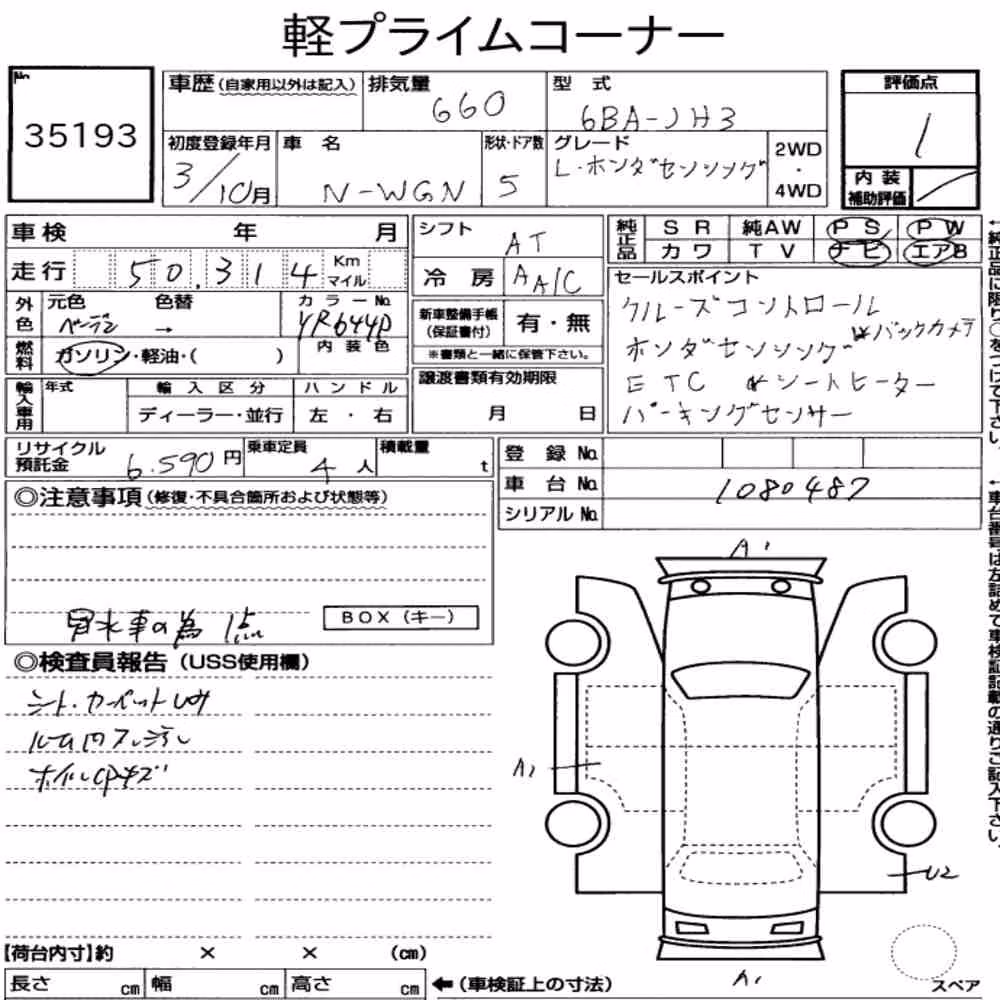 軽プライムコーナー
No.
35193
車歴(自家用以外は記入) 排気量 660 型式 6BA-JH3
初度登録年月 3/10月 車名 N-WGN 形状・ドア数 5 グレード L・ホンダセンシング 2WD・4WD
評価点 1
内装補助評価
車検 年 月
走行 50,314 Km マイル
シフト AT
冷房 AA/C
純正品 SR 純AW PS PW
カワ TV ナビ エアB
外色 元色 色替 カラーNo. YR644P
→
燃料 ガソリン・軽油・( ) 内装色
新車整備手帳(保証書付) 有・無
※書類と一緒に保管下さい。
セールスポイント
クルーズコントロール
ホンダセンシング バックカメラ
ETC シートヒーター
パーキングセンサー
輸入車用 年式 輸入区分 ハンドル
ディーラー・並行 左・右
譲渡書類有効期限
月 日
リサイクル預託金 6.590円 乗車定員 4人 積載量 t
登録No.
車台No. 1080487
シリアルNo.
◎注意事項(修復・不具合箇所および状態等)
冒水車の為 1点
BOX(キー)
◎検査員報告(USS使用欄)
シート・カーペットシミ
ルーム内
A1
A1
U2
A1
【荷台内寸】約 × × (cm)
長さ cm 幅 cm 高さ cm ←(車検証上の寸法)
スペア
←純正品に限り○をつけて下さい。
←車台番号は左詰めで車検証記載の通りご記入下さい。